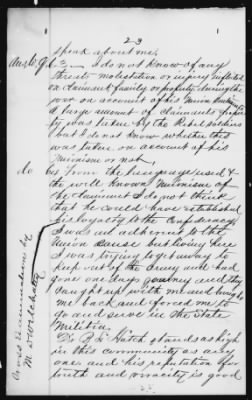 23
speak about me.
Ans to 9. 62 - I do not know of any
threats molestation or injury inflicted
on claimant family or property during the
war on account of his Union
a large amount of claimants
was taken by the Rebel soldiers
but I do not know whether this
was taken on account of his
Unionism or not.
do 63 From the language used &
the well known Unionism of
the Claimant I do not think
that he could have established
his loyalty to the Confederacy
I was an adherent to the
Union Cause but living here
I was trying to get away to
keep out of the Army and had
gone one days journey and they
caught up with me and brought
me back and forced me to
go and serve in the State
Militia.
Dr. B. F. Hatch stands as high
in this community as any
one and his reputation for
truth and veracity is good
Cross Examination by